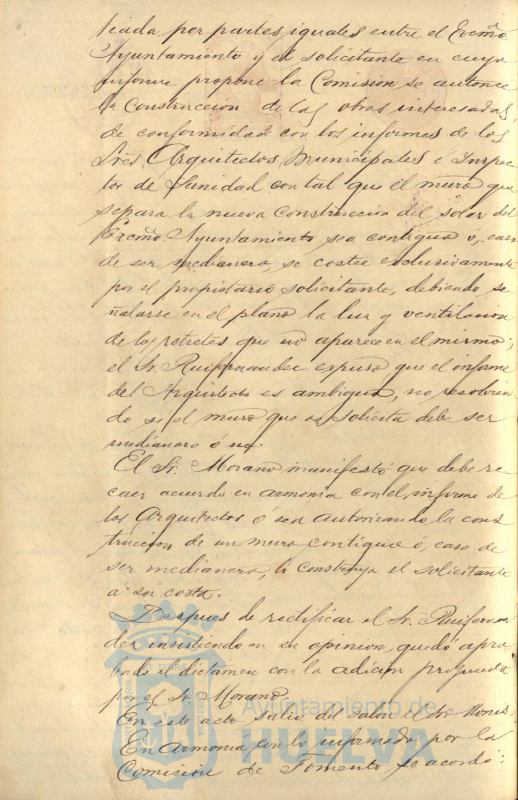 teada por partes iguales entre el Excmo.
Ayuntamiento y el solicitante en cuyo
informe propone la Comision se autorice
la construccion de las obras interesadas,
de conformidad con los informes de los
Sres. Arquitectos Municipales é Inspec
tor de Sanidad con tal que el muro que
separa la nueva construccion del solar del
Excmo. Ayuntamiento sea contiguo ó, caso
de ser medianero, se costee exclusivamente
por el propietario solicitante, debiendo se
ñalarse en el plano la luz y ventilacion
de los retretes que no aparece en el mismo;
el Sr. Ruifernandez expuso que el informe
del Arquitecto es ambiguo, no resolvien
do si el muro que se solicita debe ser
medianero ó no.
El Sr. Morano manifestó que debe re
caer acuerdo en armonia con el informe de
los Arquitectos ó sea autorizando la cons
truccion de un muro contiguo ó, caso de
ser medianero, lo construya el solicitante
á su costa.
Despues de rectificar el Sr. Ruifernan
dez insistiendo en su opinion, quedó apro
bado el dictamen con la adicion propuesta
por el Sr. Morano.
En este acto salió del salon el Sr.
En armonia con lo informado por la
Comision de Fomento se acordó:
Ayuntamiento de
HUELVA